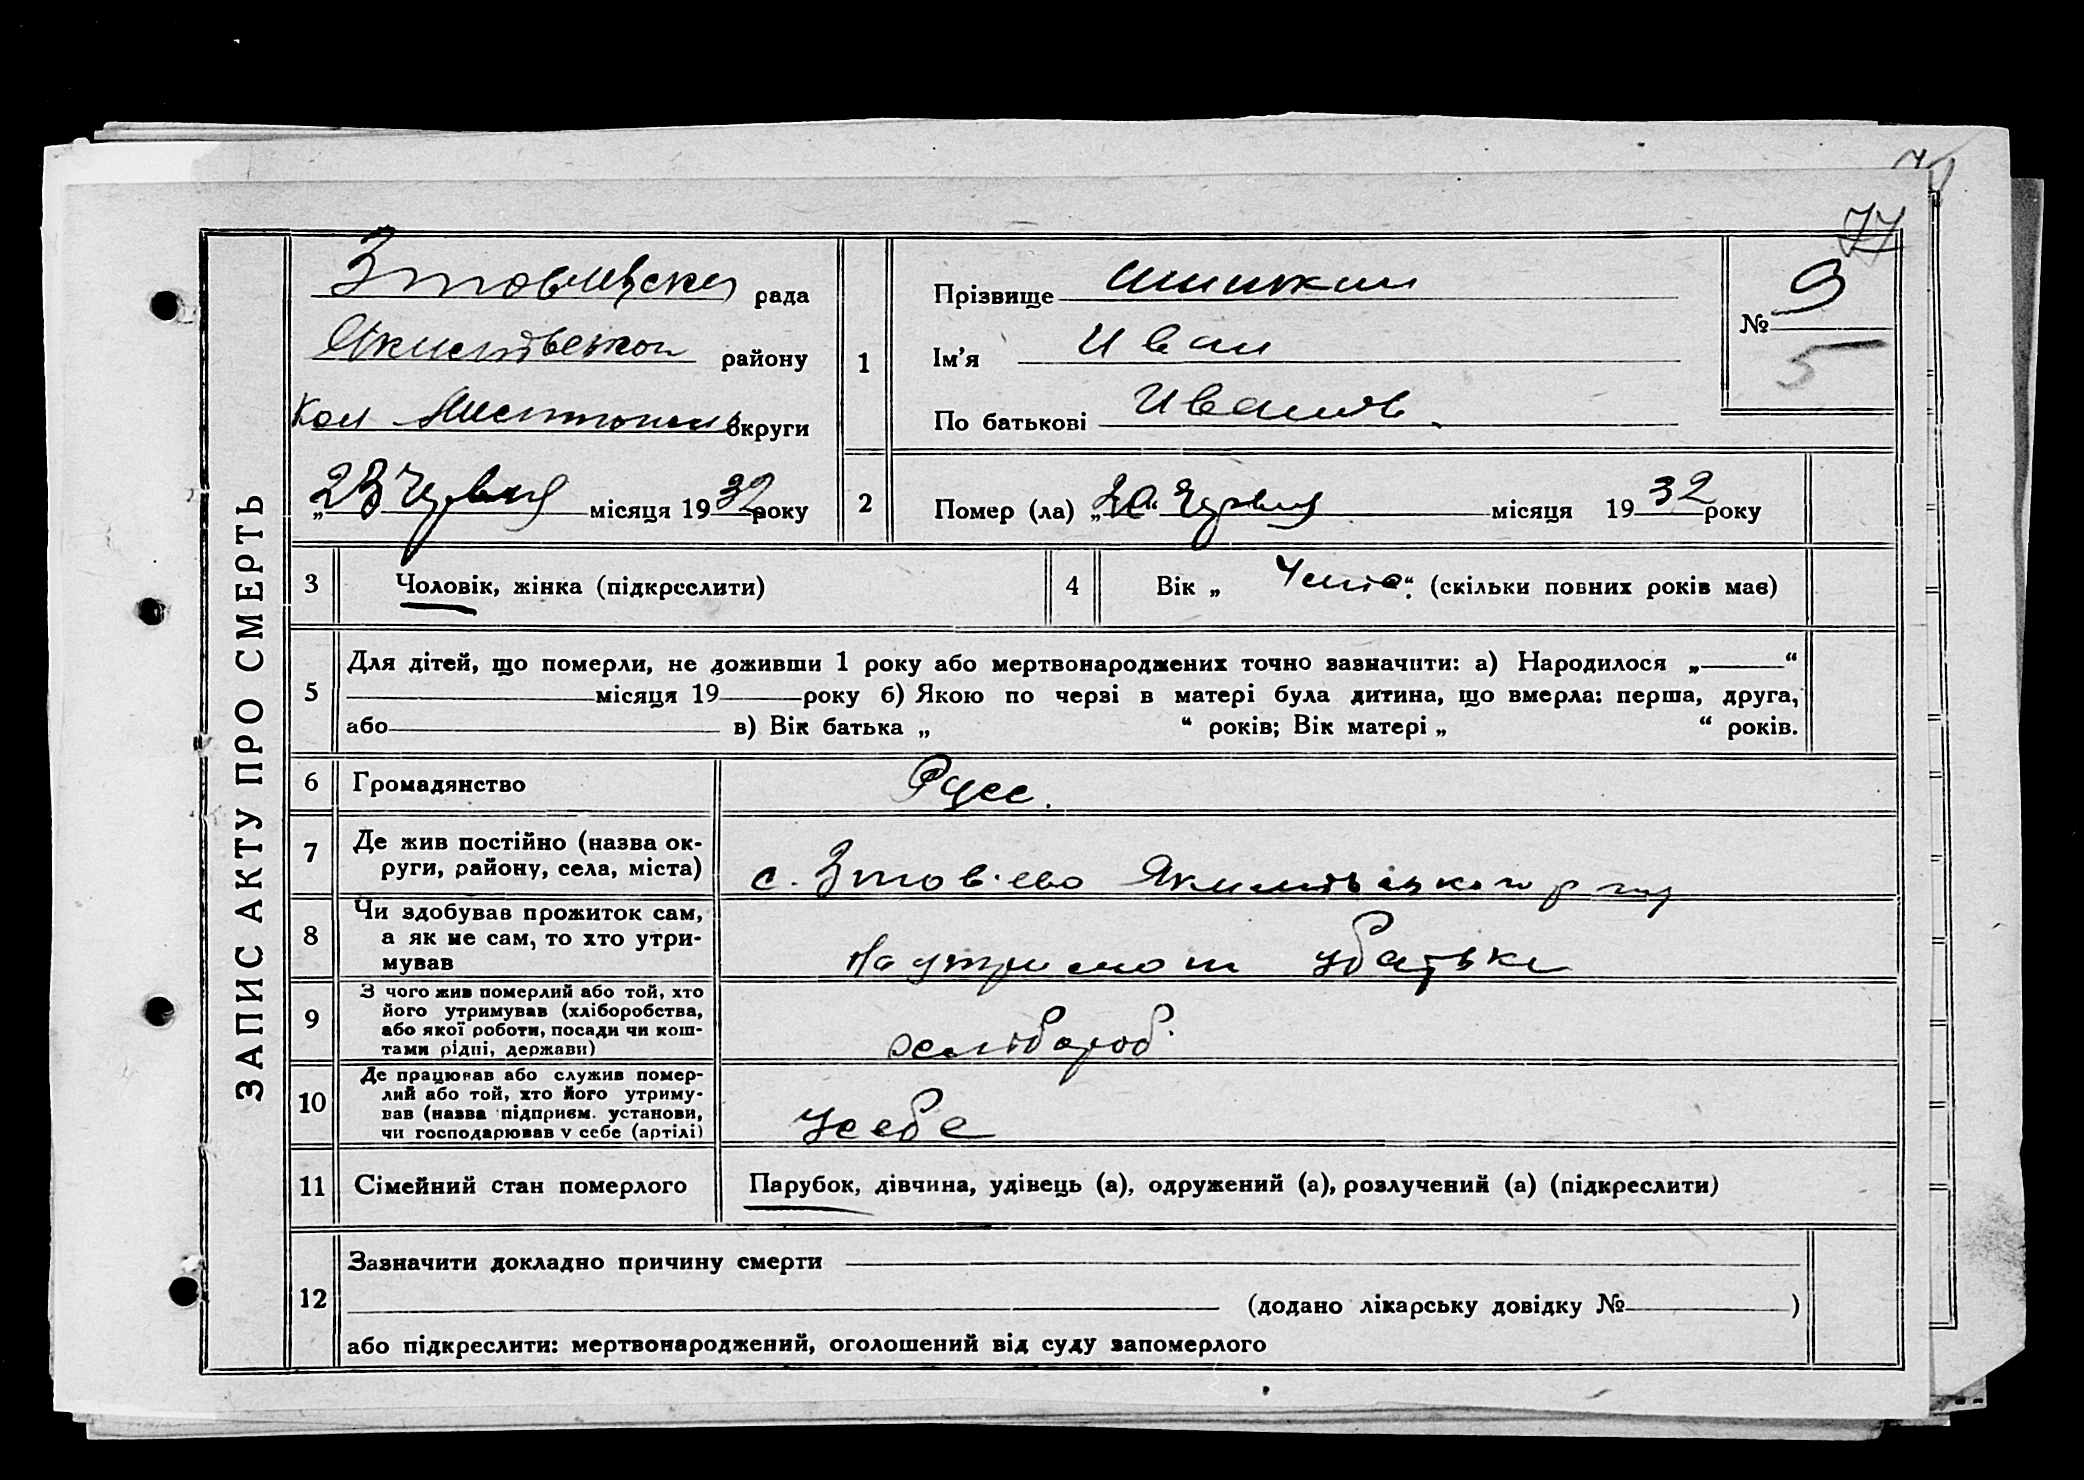 77
ЗАПИС АКТУ ПРО СМЕРТЬ
рада
району
округи
„23 Червня місяця 1932 року
1
Прізвище Шишкин
Ім'я Иван
По батькові Иванов.
№ 9
5
2
Помер (ла) „20“ Червня місяця 1932 року
3
Чоловік, жінка (підкреслити)
4
Вік „ “ (скільки повних років має)
5
Для дітей, що померли, не доживши 1 року або мертвонароджених точно зазначити: а) Народилося „ “
місяця 19 року б) Якою по черзі в матері була дитина, що вмерла: перша, друга,
або в) Вік батька „ “ років; Вік матері „ “ років.
6
Громадянство
Русс.
7
Де жив постійно (назва ок-
руги, району, села, міста)
с.
8
Чи здобував прожиток сам,
а як не сам, то хто утри-
мував
На у батька
9
З чого жив померлий або той, хто
його утримував (хліборобства,
або якої роботи, посади чи кош-
тами рідні, держави)
10
Де працював або служив помер-
лий або той, хто його утриму-
вав (назва підприєм. установи,
чи господарював у себе (артілі)
У себе
11
Сімейний стан померлого
Парубок, дівчина, удівець (а), одружений (а), розлучений (а) (підкреслити)
12
Зазначити докладно причину смерти
(додано лікарську довідку № )
або підкреслити: мертвонароджений, оголошений від суду запомерлого